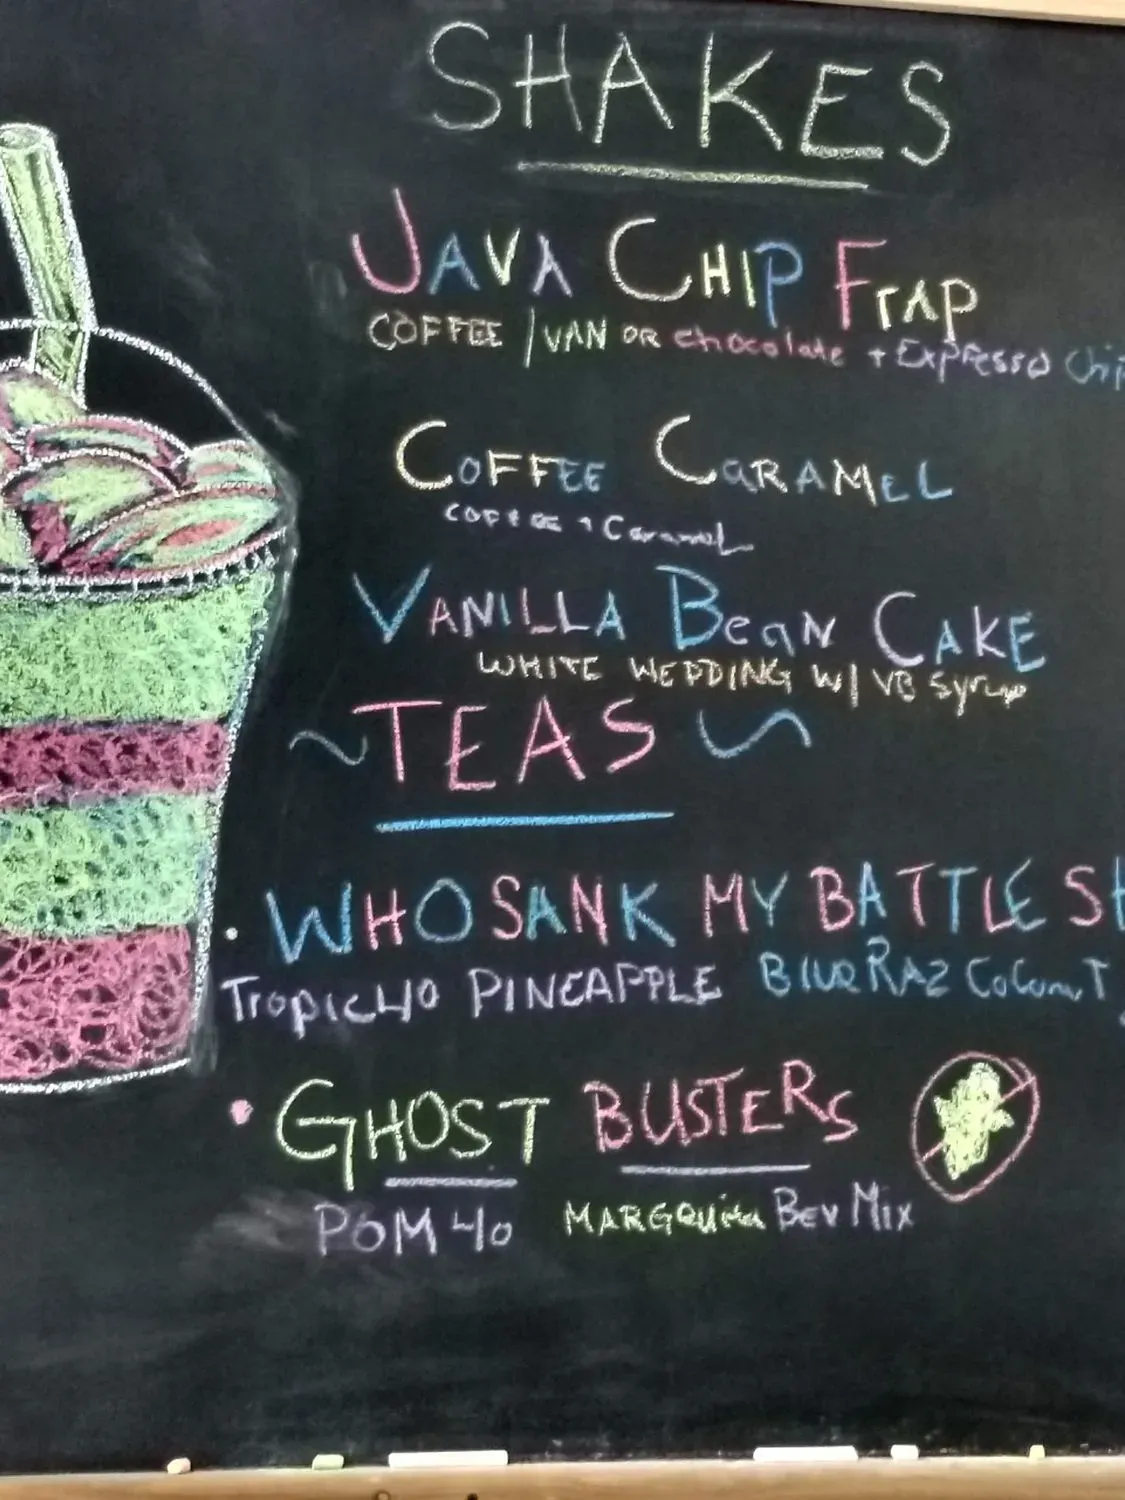 SHAKES
JAVA CHIP FrAP
COFFEE / VAN OR chocolate + Expresso Chip
COFFEE CaRAMEL
COFFEE + Caramel
VANILLA BeaN CAKE
WHITE WEDDING W/ VB Syrup
~TEAS~
• WHO SANK MY BATTLE SH
Tropic40 PINEAPPLE BlueRAZ CoConuT
• GHOST BUSTERS
POM 40 MARGQuita Bev Mix